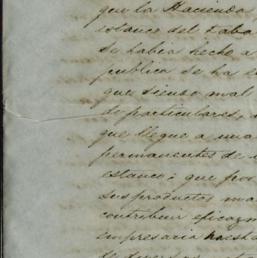 que la Hacienda
estanco del taba
se habia hecho a
publica de la
que siendo mal
de particulares,
que llegue a una
permanentes de
estanco; que por
sus productos ma
contribuir eficazm
empresaria hasta